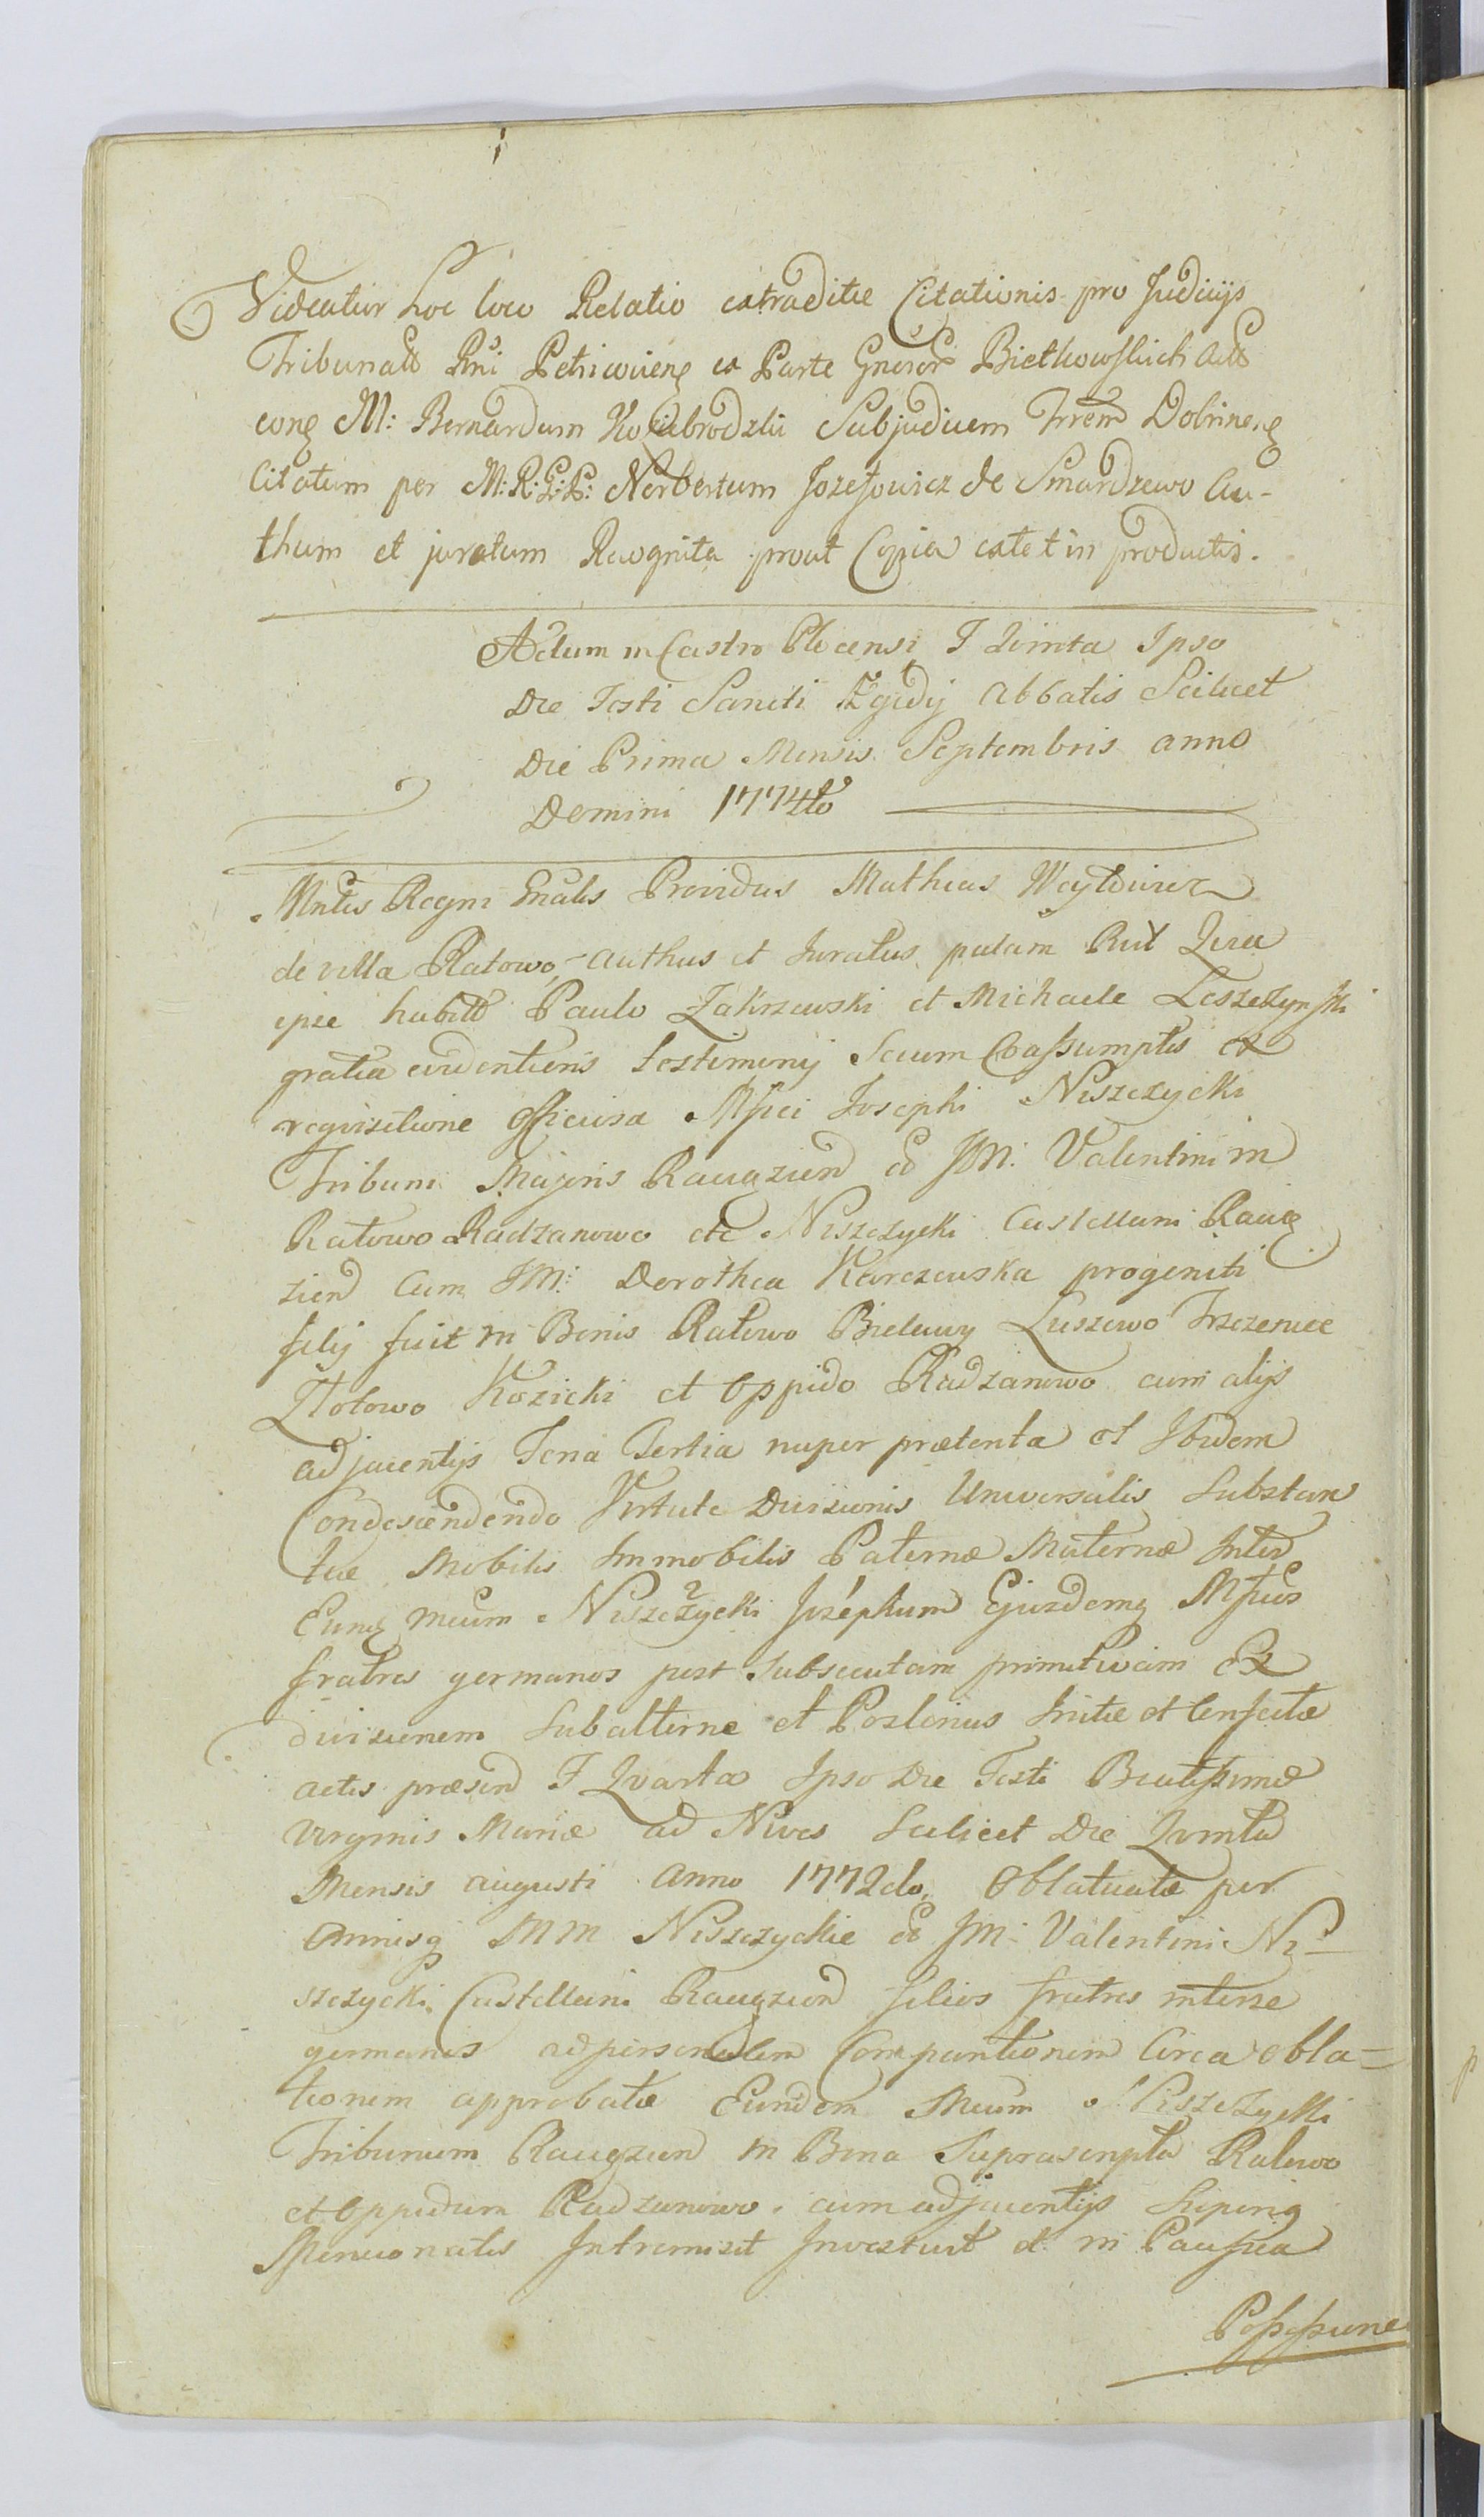 Videatur hoc loco Relatio extraditæ Citationis pro Judicijs
Tribunalb Rni Petricovien ex Parte Gnerorum Bietkowskich Actb
con M: Bernardum Kozibrodzki Subjudicem Trrem Dobrinen
Citatum per M: R: G: P: Norbertum Jozefowicz de Smardzewo Au-
thum et juratum Recognita prout Copia extet in productis.
Actum in Castro Plocensi F Quinta Ipso
Die Festi Sancti Ægidij Abbatis Scilicet
Die Prima Mensis Septembris anno
Domini 1774to
Mntis Regni Gnalis Providus Mathias Woytowicz
de villa Ratowo, authus et Juratus palam Rnt Quia
ipse habitb Paulo Zakrzewski et Michaele Leszczynski
gratia evidentioris testimonij secum Coassumptis ex
requisitione officiosa Mfici Josephi Niszczycki
Tribuni Majoris Raciazien od JM: Valentini in
Ratowo Radzanowo etc Niszczycki Castellani Raciq
zien cum JM: Dorothea Karczewska progeniti
filij fuit in Bonis Ratowo Bielawy Luszewo Trzczenice
Zlotowo Kozicki et Oppido Radzanowo cum alijs
adjacentijs Feria Tertia nuper prætenta et Ibidem
Condescendendo Virtute Divisionis Universalis Substan
tiæ Mobilis Immobilis Paternæ Maternæ Inter
Eund Mcum Niszczycki Josephum Ejusdemq Mficos
fratres germanos post subsecutam primitivam Ex
divisionem Subalterne et Postenus Initæ et Confectæ
actis præsen F Quarta Ipso Die Festi Beatissimæ
Virginis Mariæ ad Nives Scilicet Die Quinta
Mensis Augusti Anno 1772do. Oblatuatæ per
Omnesq MM Niszczyckie od JM: Valentini Ni-
szczycki Castellani Raciazien filios fratres interse
germanos ad personalem Comparitionem Circa obla=
tionem approbatæ Eundem Mcum Niszczycki
Tribunum Raciazien in Bona Suprascripta Ratowo
et Oppidum Radzanowo cum adjacentijs Superiq
Specinonatis Intromisit Investivit et in Pacifica
Possessione